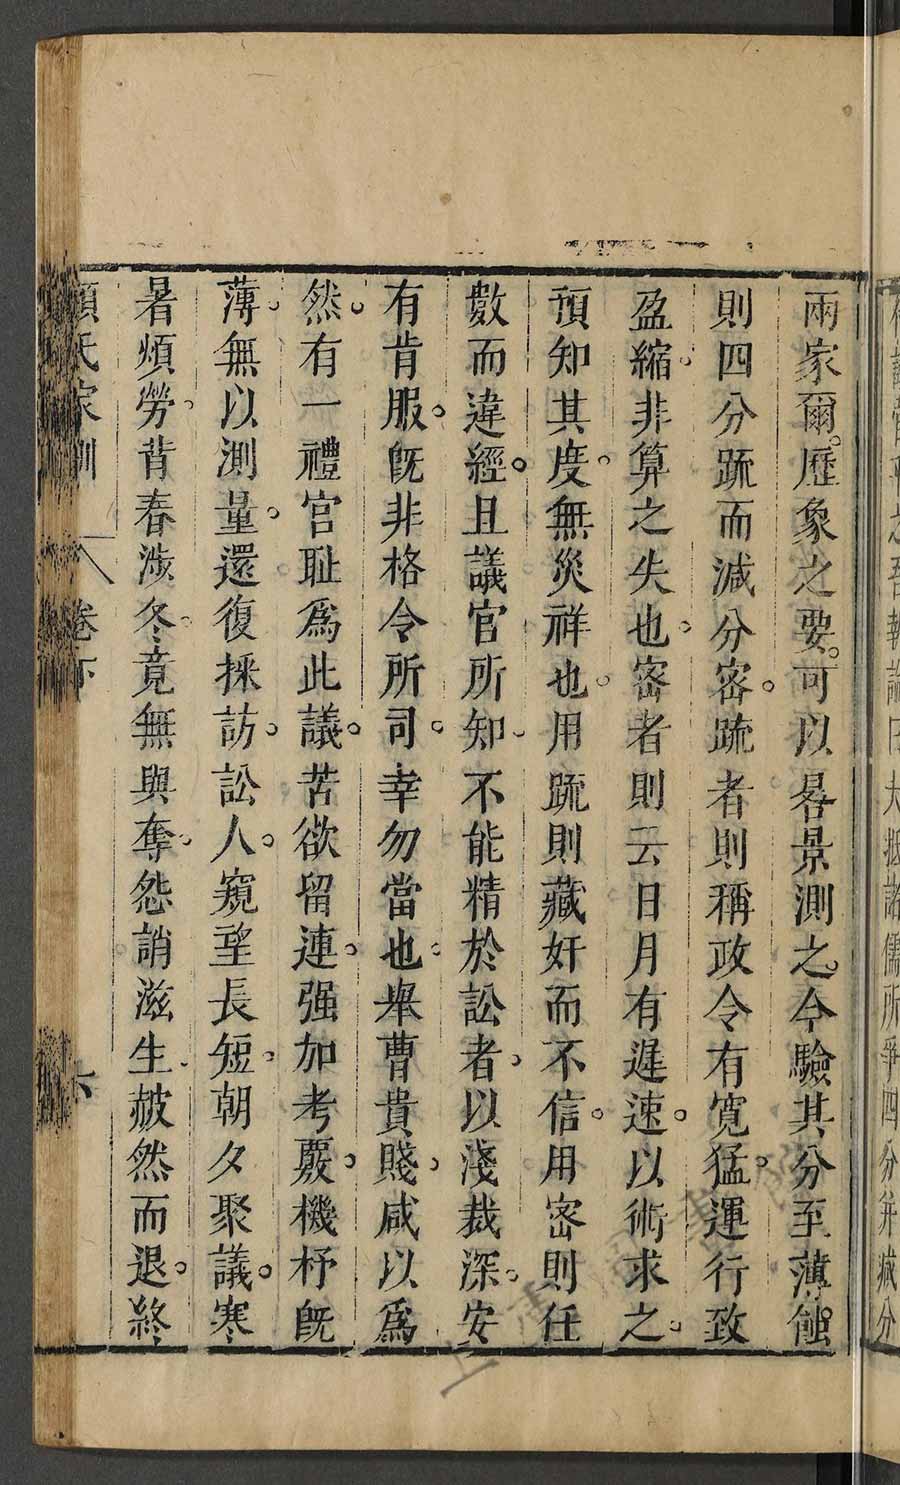 兩家爾。歷象之要。可以晷景測之。今驗其分至薄蝕。
則四分䟽而減分密。䟽者則稱政令有寬猛。運行致
盈縮。非算之失也。密者則云日月有遲速。以術求之。
預知其度。無災祥也。用䟽則藏奸而不信。用密則任
數而違經。且議官所知。不能精於訟者。以淺裁深。安
有肯服。旣非格令所司。幸勿當也。舉曹貴賤。咸以為
然。有一禮官耻為此議。苦欲留連。强加考覈。機杼旣
薄。無以測量。還復採訪。訟人。窺望長短。朝夕聚議。寒
暑煩勞。背春涉冬。竟無與奪。怨誚滋生。赧然而退。終
顏氏家訓 卷下 六